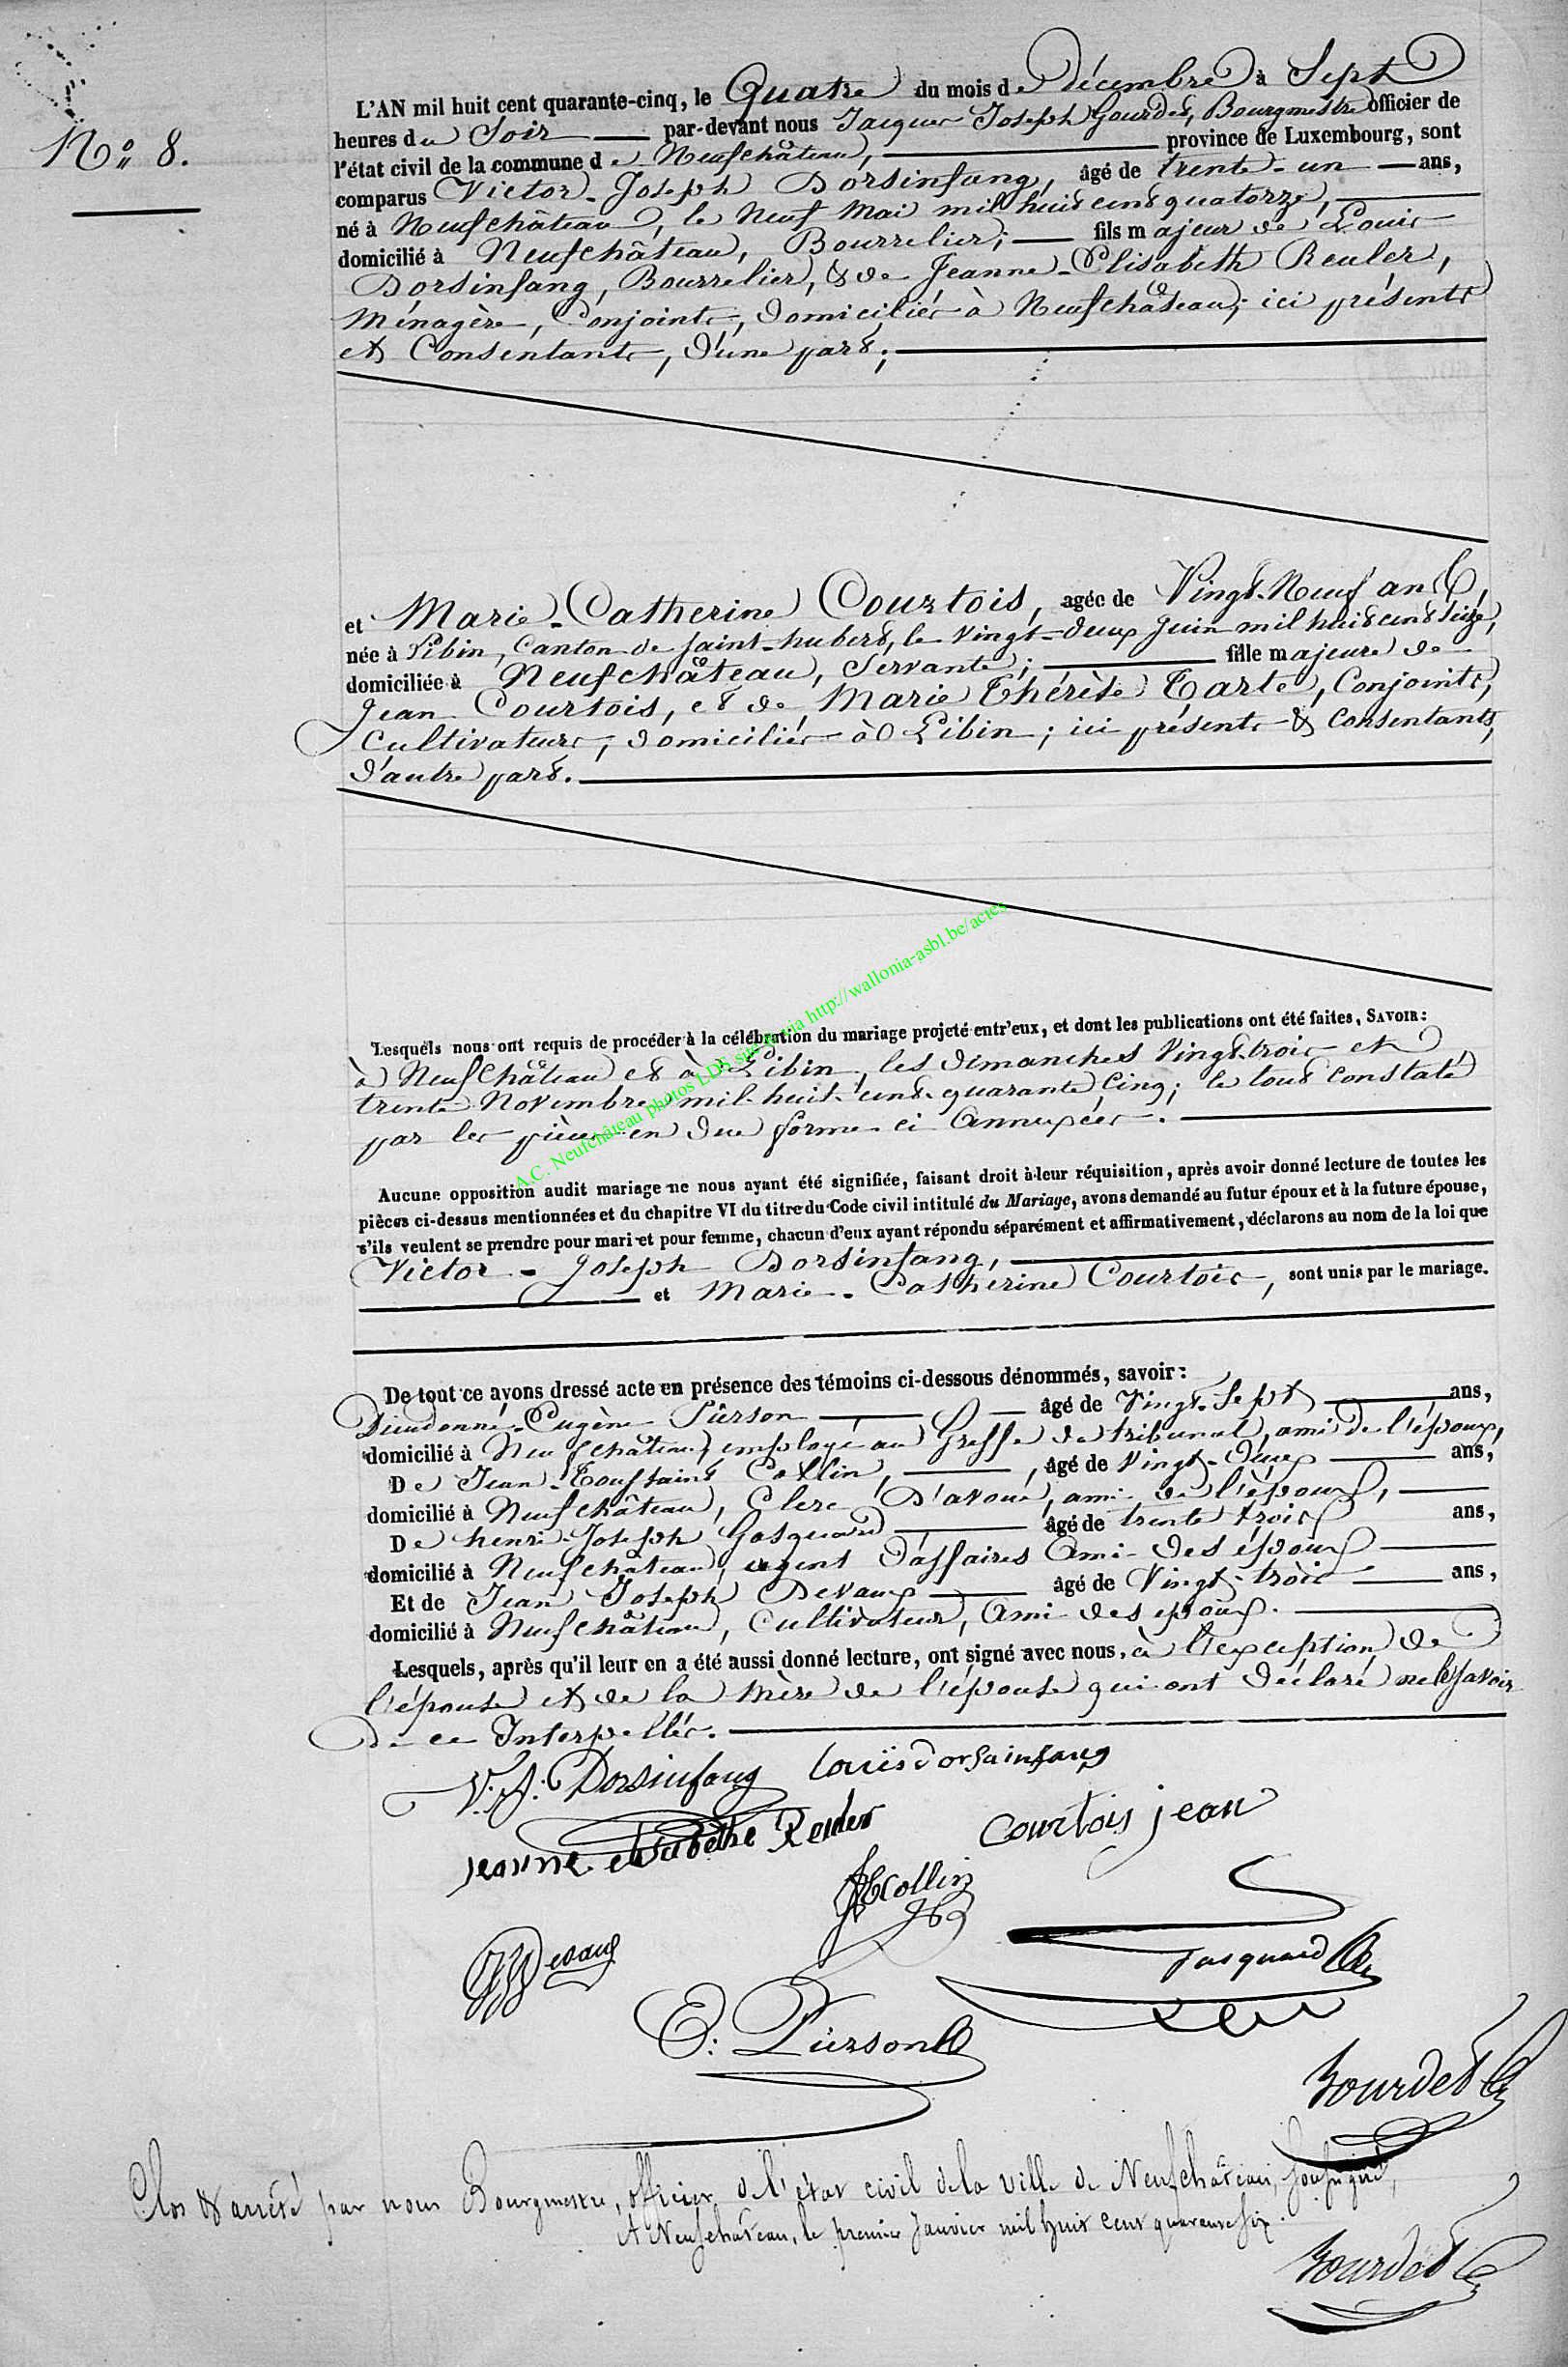 N.º 8.
L'AN mil huit cent quarante-cinq, le Quatre du mois de Décembre à Sept
heures du Soir par-devant nous Jacques Joseph Gourdet, Bourgmestre officier de
l'état civil de la commune de Neufchâteau, province de Luxembourg, sont
comparus Victor-Joseph Dorsinfang, âgé de trente-un ans,
né à Neufchâteau, le Neuf Mai mil huit cent quatorze,
domicilié à Neufchâteau, Bourrelier; fils majeur de Louis
Dorsinfang, Bourrelier, & de Jeanne-Elisabeth Reuler,
Ménagère, Conjoints, domiciliés à Neufchâteau; ici présents
et Consentants, d'une part;
et Marie-Catherine Courtois, agée de Vingt-Neuf ans,
née à Libin, Canton de Saint-hubert, le Vingt-deux Juin mil huit cent seize,
domiciliée à Neufchâteau, Servante; fille majeure de
Jean Courtois, et de Marie Thérèse Tarte, Conjoints,
Cultivateurs, domiciliés à Libin; ici présents & Consentants,
d'autre part.
Lesquels nous ont requis de procéder à la célébration du mariage projeté entr'eux, et dont les publications ont été faites, SAVOIR:
à Neufchâteau et à Libin, les dimanches Vingt-trois et
trente Novembre mil huit cent quarante Cinq; le tout Constaté
par les pièces en due forme ci Annexées.
A.C. Neufchâteau photos LDS site via http://wallonia-asbl.be/actes
Aucune opposition audit mariage ne nous ayant été signifiée, faisant droit à leur réquisition, après avoir donné lecture de toutes les
pièces ci-dessus mentionnées et du chapitre VI du titre du Code civil intitulé du Mariage, avons demandé au futur époux et à la future épouse,
s'ils veulent se prendre pour mari et pour femme, chacun d'eux ayant répondu séparément et affirmativement, déclarons au nom de la loi que
Victor-Joseph Dorsinfang,
et Marie-Catherine Courtois, sont unis par le mariage.
De tout ce avons dressé acte en présence des témoins ci-dessous dénommés, savoir:
Dieudonné-Eugène Pierson âgé de Vingt-Sept ans,
domicilié à Neufchâteau, employé au Greffe du tribunal, ami de l'époux,
De Jean-Toussaint Collin, âgé de Vingt-Deux ans,
domicilié à Neufchâteau, Clerc D'avoué, ami de l'époux,
De henri-Joseph Gosquard âgé de trente trois ans,
domicilié à Neufchâteau, agent D'affaires Ami des époux
Et de Jean Joseph Devaux âgé de Vingt-trois ans,
domicilié à Neufchâteau, Cultivateur, Ami des époux.
Lesquels, après qu'il leur en a été aussi donné lecture, ont signé avec nous, à l'exception de
l'épouse et de la Mère de l'épouse qui ont déclaré ne le Savoir
de ce Interpellés.
V. J. Dorsinfang Louis dorsainfang
jeanne elisabethe Reuler Courtois jean
JTCollin
JJDevaux Gosquard
E: Pierson
Gourdet
Clos & arrêté par nous Bourgmestre, officier de l'état civil de la ville de Neufchâteau, soussigné,
A Neufchâteau, le premier Janvier mil huit cent quarante six.
Gourdet